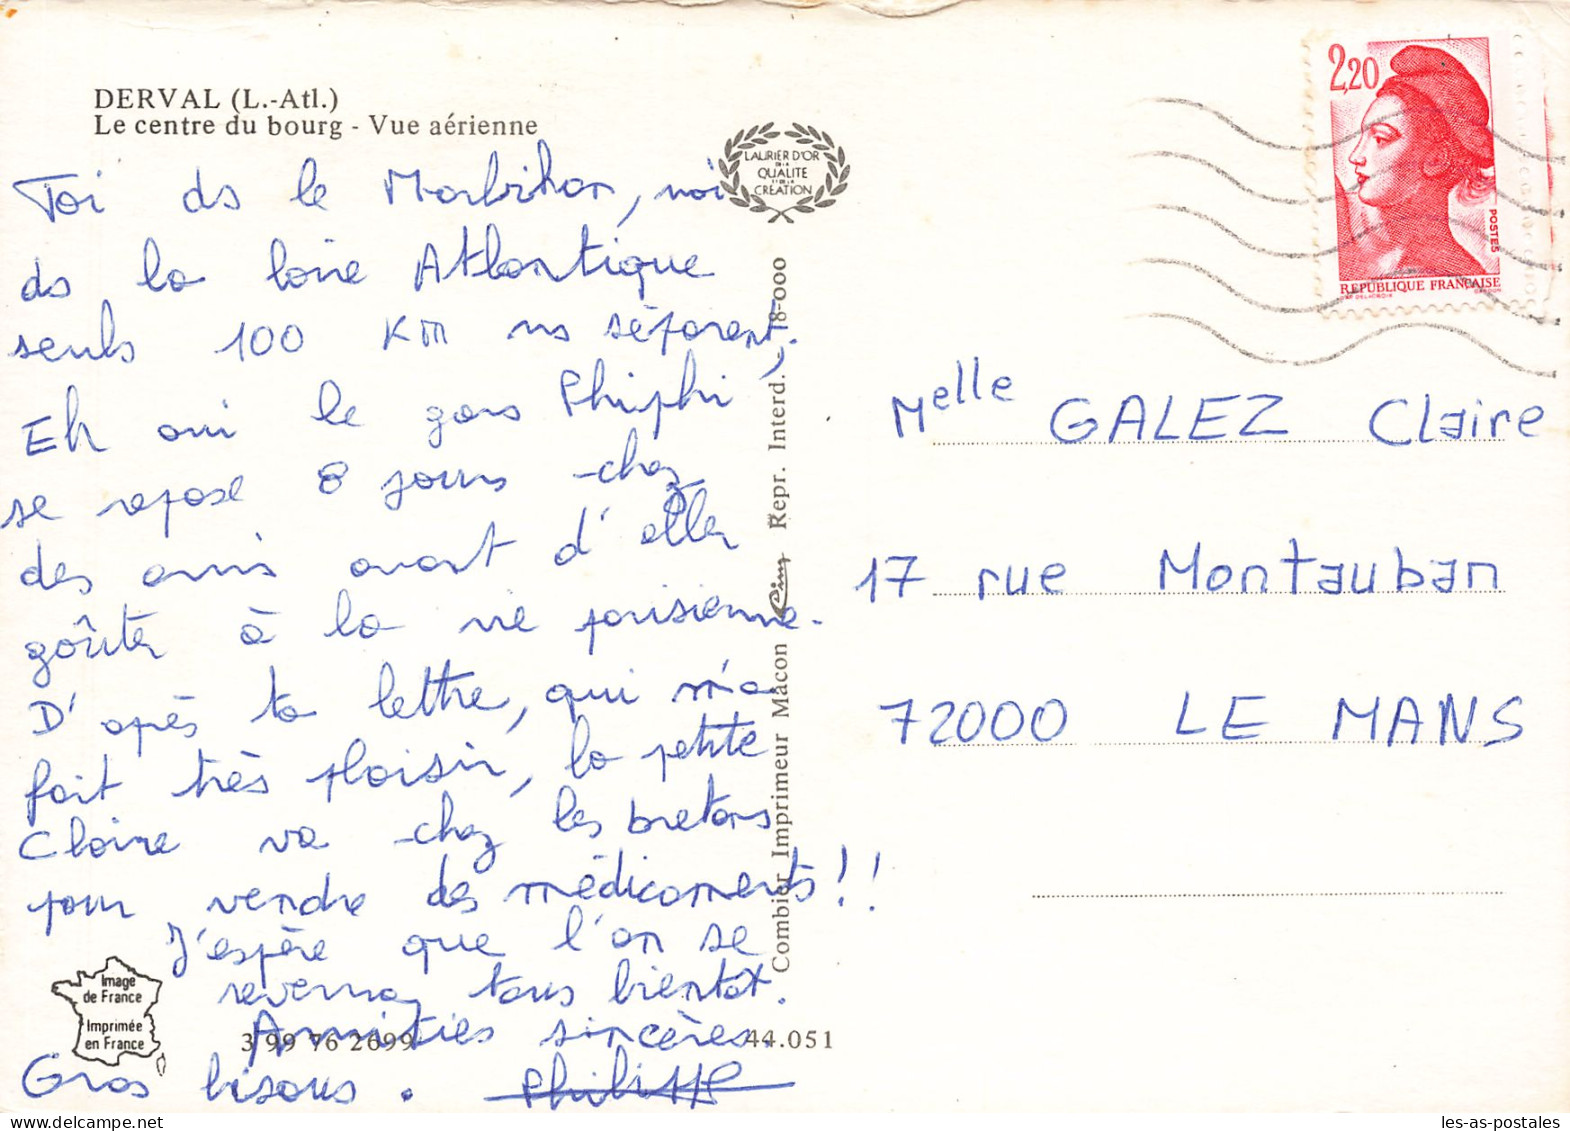 DERVAL (L.-Atl.)
Le centre du bourg - Vue aérienne
Toi ds le Morbihan, moi
ds la loire Atlantique
seuls 100 KM ns séparent,
Eh oui le gars Phiphi
se repose 8 jours chez
des amis avant d'aller
goûter à la vie parisienne.
D'après ta lettre, qui m'a
fait très plaisir, la petite
Claire va chez les bretons
pour vendre des médicaments!!
J'espère que l'on se
reverra tous bientot.
Amitiés sincères.
Gros bisous. Philippe
Image
de France
Imprimée
en France
3 99 76 2699
44.051
LAURIER D'OR
DE LA
QUALITE
ET DE LA
CREATION
Combier Imprimeur Mâcon Cim Repr. Interd. 18-000
2,20
POSTES
REPUBLIQUE FRANÇAISE
Melle GALEZ Claire
17 rue Montauban
72000 LE MANS
les-as-postales